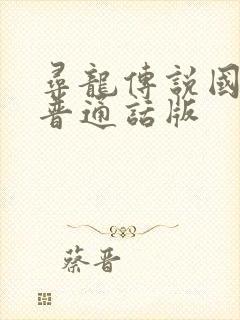 尋龍傳說國
普通話版
蔡晋